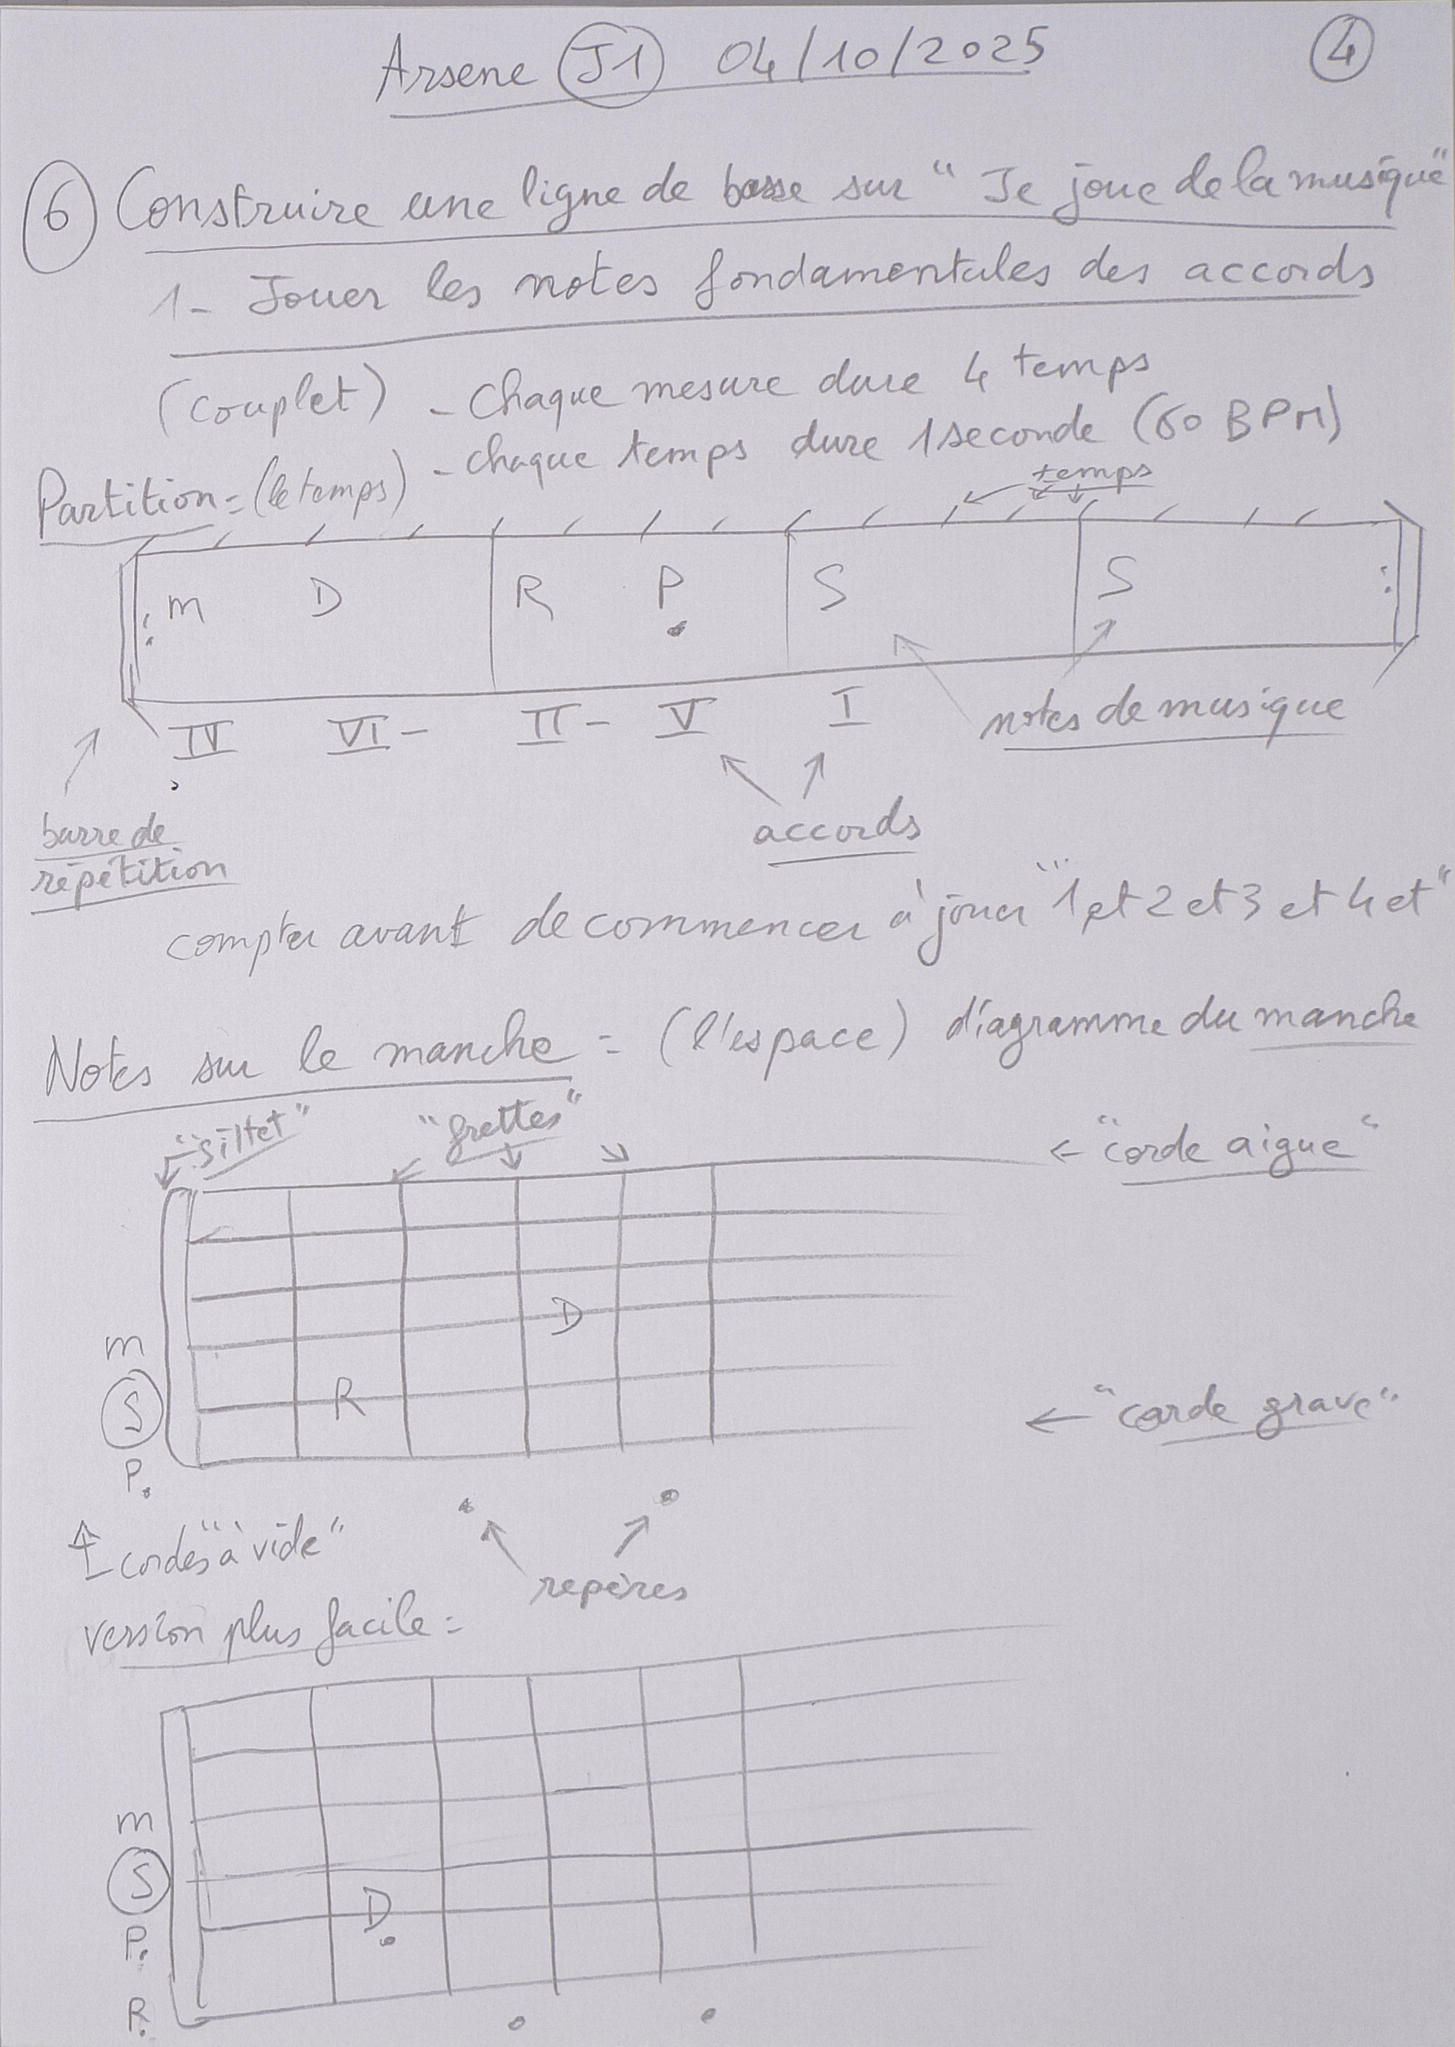 Arsene J1 04/10/2025 4
6 Construire une ligne de basse sur "Je joue de la musique"
1- Jouer les notes fondamentales des accords
(couplet) - Chaque mesure dure 4 temps
- chaque temps dure 1 seconde (60 BPM)
Partition = (le temps)
temps
: m D R P. S S :
IV VI- II- V I
notes de musique
accords
barre de
répétition
compter avant de commencer à jouer "1 et 2 et 3 et 4 et"
Notes sur le manche = (l'espace) diagramme du manche
"siltet" "frettes"
← "corde aigue"
D
m
S R
← "corde grave"
P.
cordes "à vide"
repères
version plus facile =
m
S
D.
P.
R.